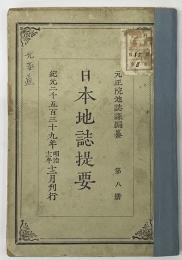 元正院地誌課編纂
第八册
日本地誌提要
紀元二千五百三十九年 明治十二年 十二月刊行